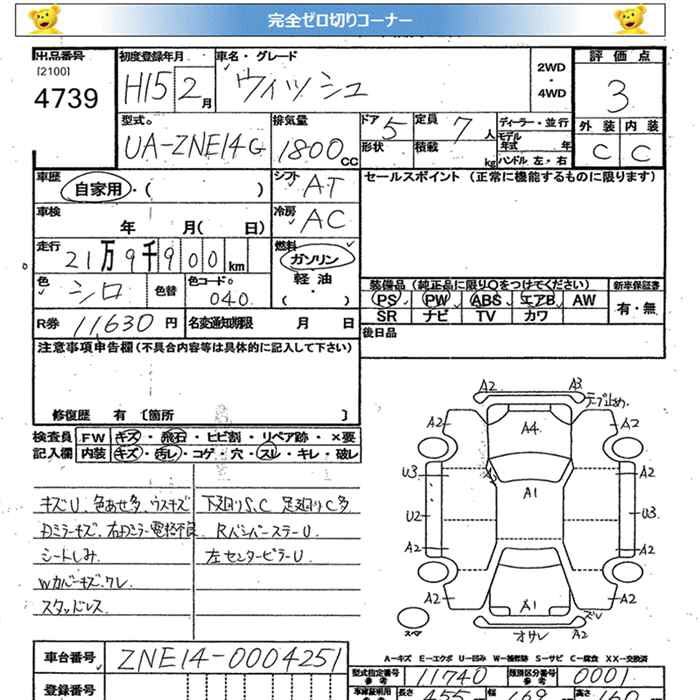 完全ゼロ切りコーナー
出品番号 初度登録年月 車名・グレード 評価点
[2100]
4739 H15 2月 ウィッシュ 2WD・4WD 3
型式 排気量 ドア 5 定員 7人 ディーラー・並行 外装 内装
UA-ZNE14G 1800cc 形状 積載 kg モデル年式 年 C C
ハンドル 左・右
車歴 自家用・( ) シフト AT セールスポイント (正常に機能するものに限ります)
車検 年 月( 日) 冷房 AC
走行 21万9千900km 燃料 ガソリン
軽油
・( )
色 シロ 色替 色コード 040 装備品 (純正品に限り○をつけてください) 新車保証書
PS PW ABS エアB AW 有・無
SR ナビ TV カワ
R券 11,630円 名変通知期限 月 日 後日品
注意事項申告欄 (不具合内容等は具体的に記入して下さい)
修復歴 有 〔箇所 〕
検査員 FW キズ・飛石・ヒビ割・リペア跡・×要
記入欄 内装 キズ・汚レ・コゲ・穴・スレ・キレ・破レ
キズU、色あせ多、ウスキズ 下廻りS、C 足廻りC多
Dミラーキズ、右Dミラー電格不良 RバンパーステーU
シートしみ 左センターピラーU
Wカバーキズ、ワレ
スタッドレス
A2 A3 テープ止め
A2 A4 A2
U3 A1 A2
U2 U3
A2 A2
A2 A1 A2
スペア オサレ A2 ズレ
A-キズ E-エクボ U-凹み W-補修跡 S-サビ C-腐食 XX-交換済
車台番号 ZNE14-0004251
型式指定番号 参考 11740 類別区分番号 参考 0001
登録番号 長さ 455 幅 169 高さ 160